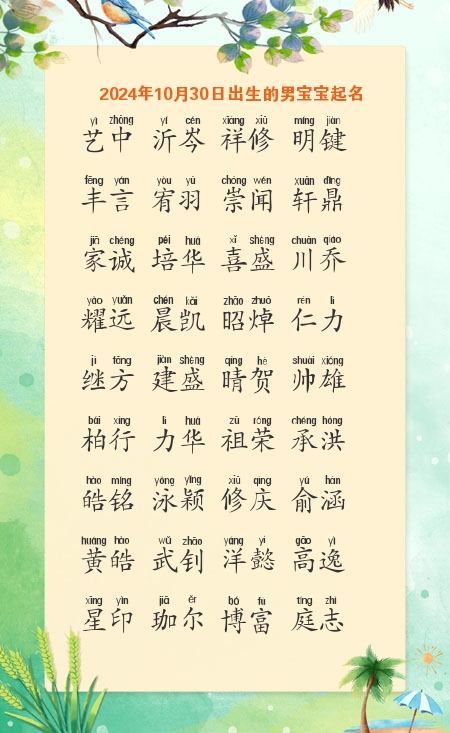 2024年10月30日出生的男宝宝起名
yì zhōng yí cén xiáng xiū míng jiàn
艺中 沂岑 祥修 明键
fēng yán yòu yǔ chóng wén xuān dǐng
丰言 宥羽 崇闻 轩鼎
jiā chéng péi huá xǐ shèng chuān qiáo
家诚 培华 喜盛 川乔
yào yuǎn chén kǎi zhāo zhuō rén lì
耀远 晨凯 昭焯 仁力
jì fāng jiàn shèng qíng hè shuài xióng
继方 建盛 晴贺 帅雄
bǎi xíng lì huá zǔ róng chéng hóng
柏行 力华 祖荣 承洪
hào míng yǒng yǐng xiū qìng yú hán
皓铭 泳颖 修庆 俞涵
huáng hào wǔ zhāo yáng yì gāo yì
黄皓 武钊 洋懿 高逸
xīng yìn jiā ěr bó fù tíng zhì
星印 珈尔 博富 庭志